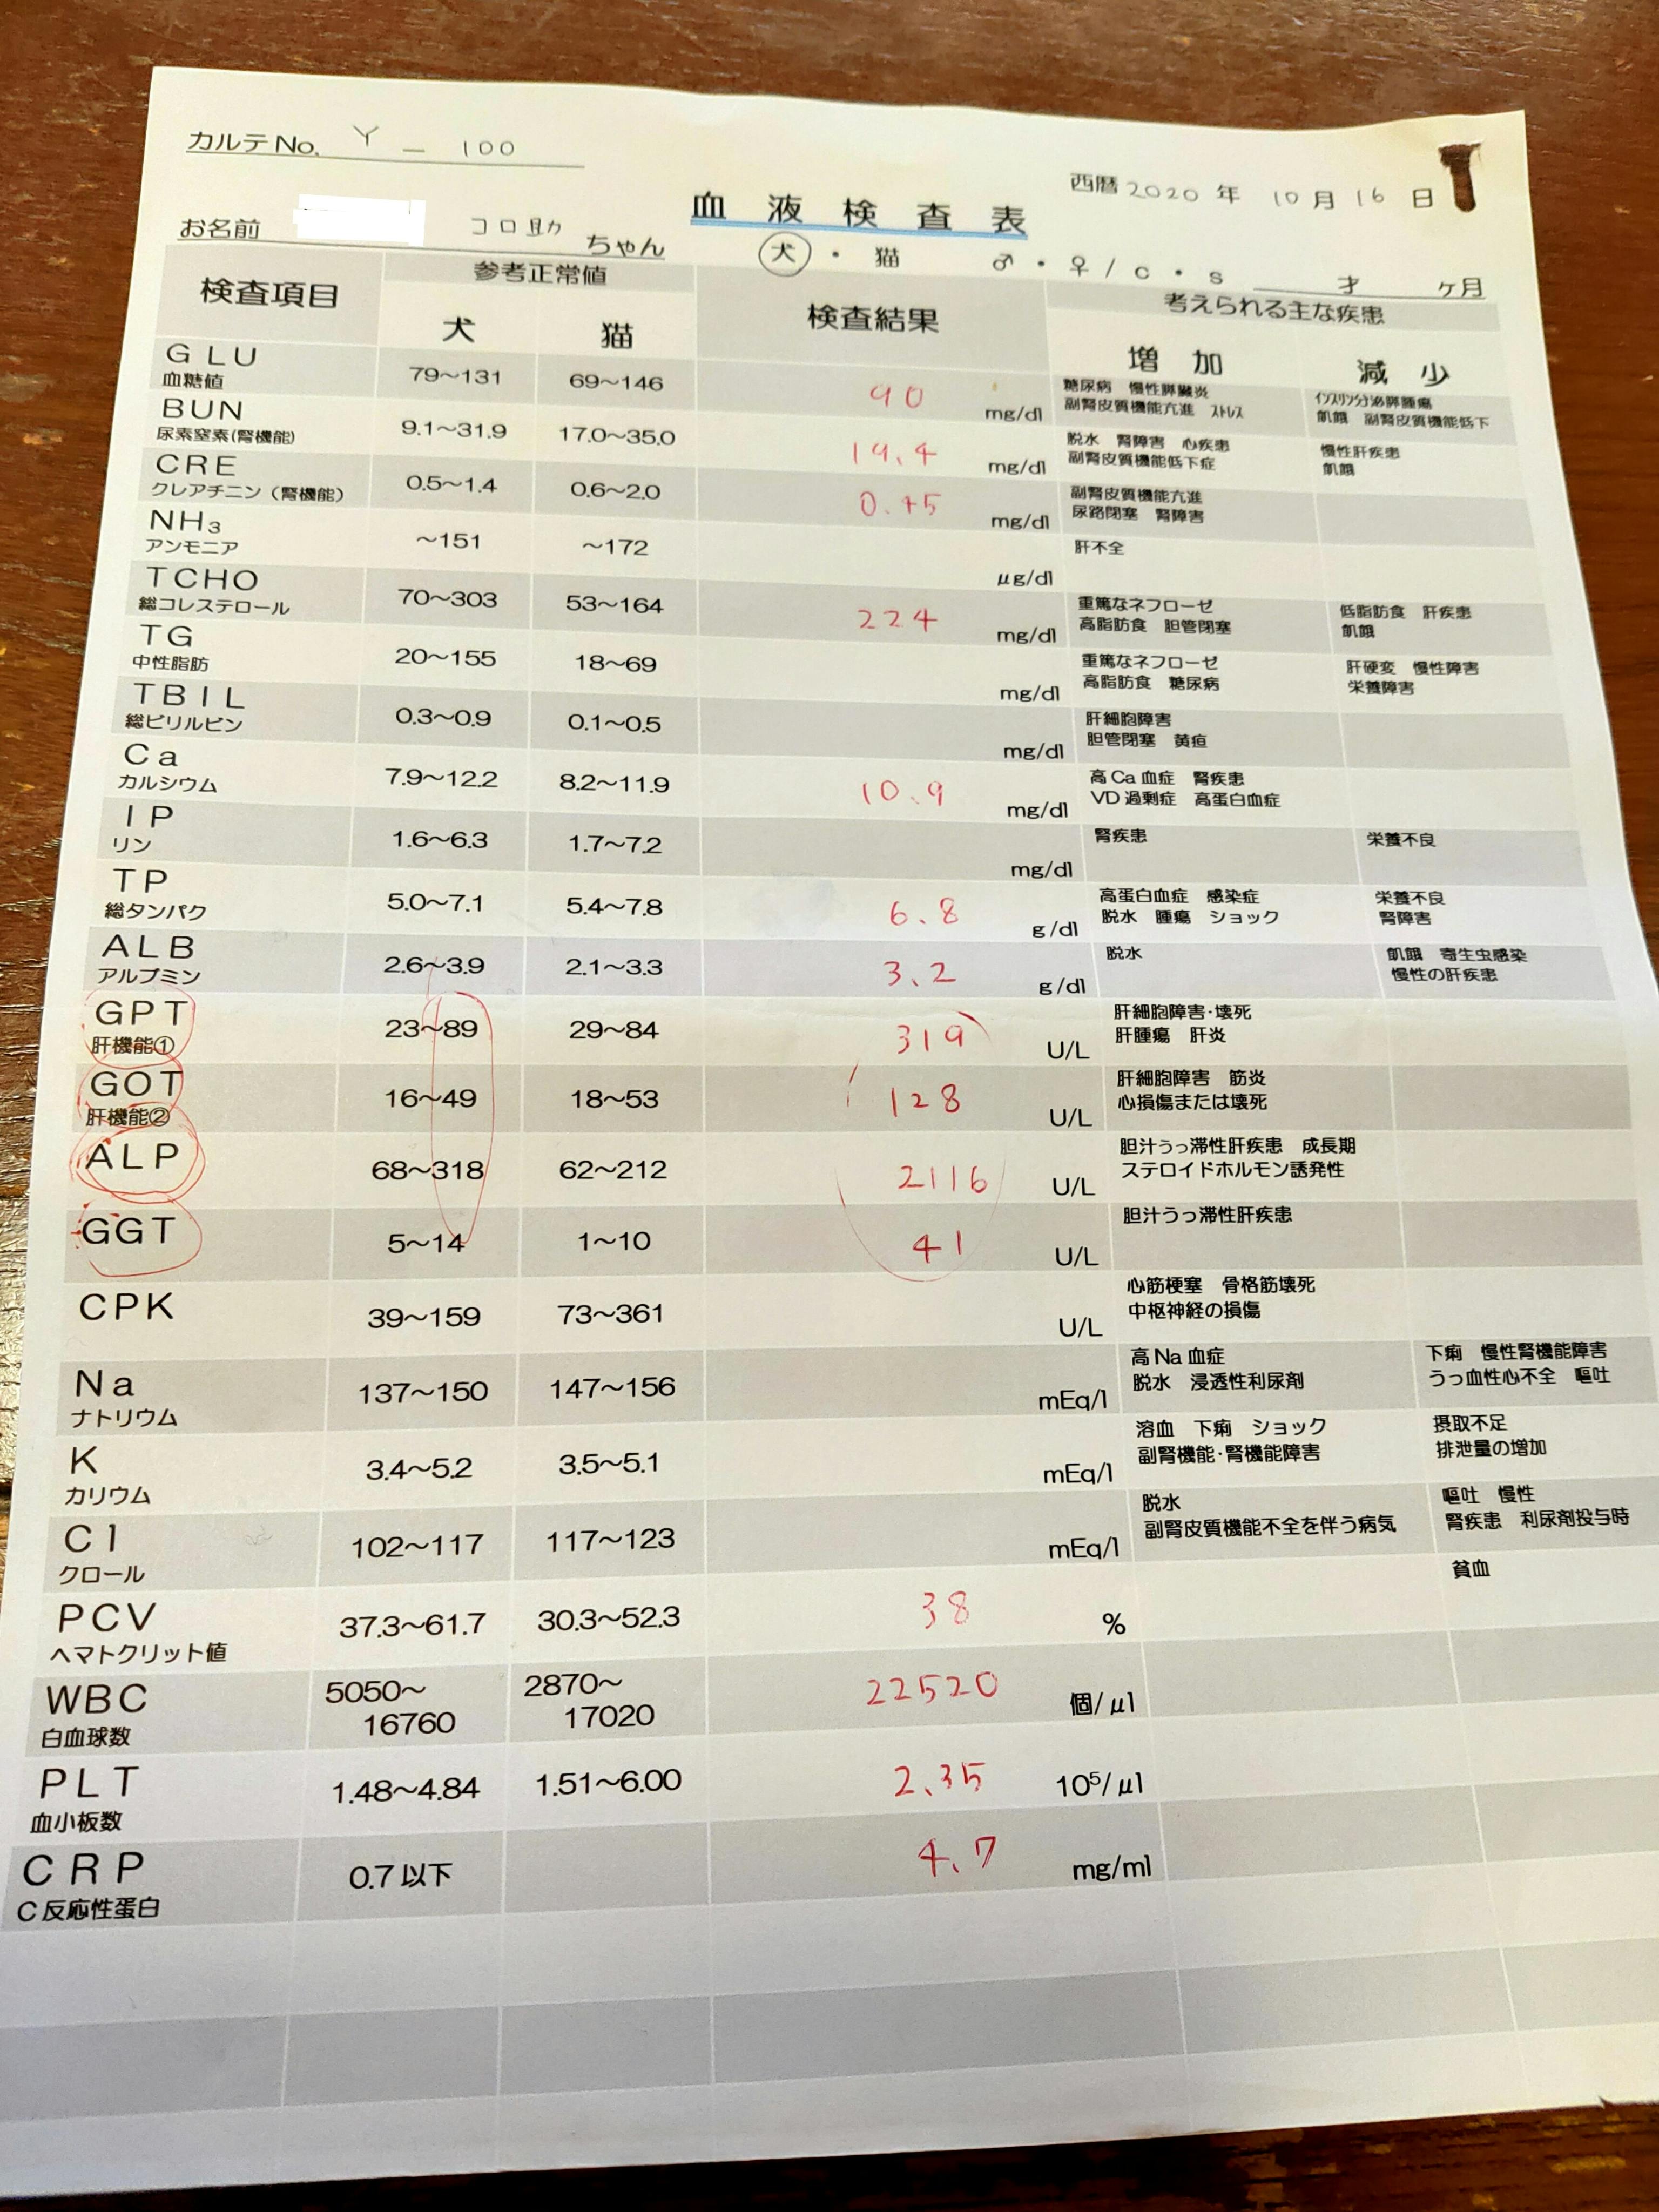 カルテNo. Y - 100
西暦 2020 年 10 月 16 日
血液検査表
お名前 コロ助 ちゃん
犬 ・ 猫 ♂ ・ ♀ / c ・ s 才 ヶ月
検査項目 参考正常値 検査結果 考えられる主な疾患
犬 猫 増加 減少
GLU 79～131 69～146 90 mg/dl 糖尿病 慢性膵臓炎 インスリン分泌膵腫瘍
血糖値 副腎皮質機能亢進 ストレス 飢餓 副腎皮質機能低下
BUN 9.1～31.9 17.0～35.0 19.4 mg/dl 脱水 腎障害 心疾患 慢性肝疾患
尿素窒素(腎機能) 副腎皮質機能低下症 飢餓
CRE 0.5～1.4 0.6～2.0 mg/dl 副腎皮質機能亢進
クレアチニン（腎機能） 尿路閉塞 腎障害
NH₃ ～151 ～172 μg/dl 肝不全
アンモニア
TCHO 70～303 53～164 224 mg/dl 重篤なネフローゼ 低脂肪食 肝疾患
総コレステロール 高脂肪食 胆管閉塞 飢餓
TG 20～155 18～69 mg/dl 重篤なネフローゼ 肝硬変 慢性障害
中性脂肪 高脂肪食 糖尿病 栄養障害
TBIL 0.3～0.9 0.1～0.5 mg/dl 肝細胞障害
総ビリルビン 胆管閉塞 黄疸
Ca 7.9～12.2 8.2～11.9 10.9 mg/dl 高Ca血症 腎疾患
カルシウム VD過剰症 高蛋白血症
IP 1.6～6.3 1.7～7.2 mg/dl 腎疾患 栄養不良
リン
TP 5.0～7.1 5.4～7.8 6.8 g/dl 高蛋白血症 感染症 栄養不良
総タンパク 脱水 腫瘍 ショック 腎障害
ALB 2.6～3.9 2.1～3.3 3.2 g/dl 脱水 飢餓 寄生虫感染
アルブミン 慢性の肝疾患
GPT 23～89 29～84 319 U/L 肝細胞障害・壊死
肝機能① 肝腫瘍 肝炎
GOT 16～49 18～53 128 U/L 肝細胞障害 筋炎
肝機能② 心損傷または壊死
ALP 68～318 62～212 2116 U/L 胆汁うっ滞性肝疾患 成長期
ステロイドホルモン誘発性
GGT 5～14 1～10 41 U/L 胆汁うっ滞性肝疾患
CPK 39～159 73～361 U/L 心筋梗塞 骨格筋壊死
中枢神経の損傷
Na 137～150 147～156 mEq/l 高Na血症 下痢 慢性腎機能障害
ナトリウム 脱水 浸透性利尿剤 うっ血性心不全 嘔吐
K 3.4～5.2 3.5～5.1 mEq/l 溶血 下痢 ショック 摂取不足
カリウム 副腎機能・腎機能障害 排泄量の増加
Cl 102～117 117～123 mEq/l 脱水 嘔吐 慢性
クロール 副腎皮質機能不全を伴う病気 腎疾患 利尿剤投与時
PCV 37.3～61.7 30.3～52.3 38 % 貧血
ヘマトクリット値
WBC 5050～ 2870～ 22520 個/μl
白血球数 16760 17020
PLT 1.48～4.84 1.51～6.00 2.35 10⁵/μl
血小板数
CRP 0.7以下 4.7 mg/ml
C反応性蛋白